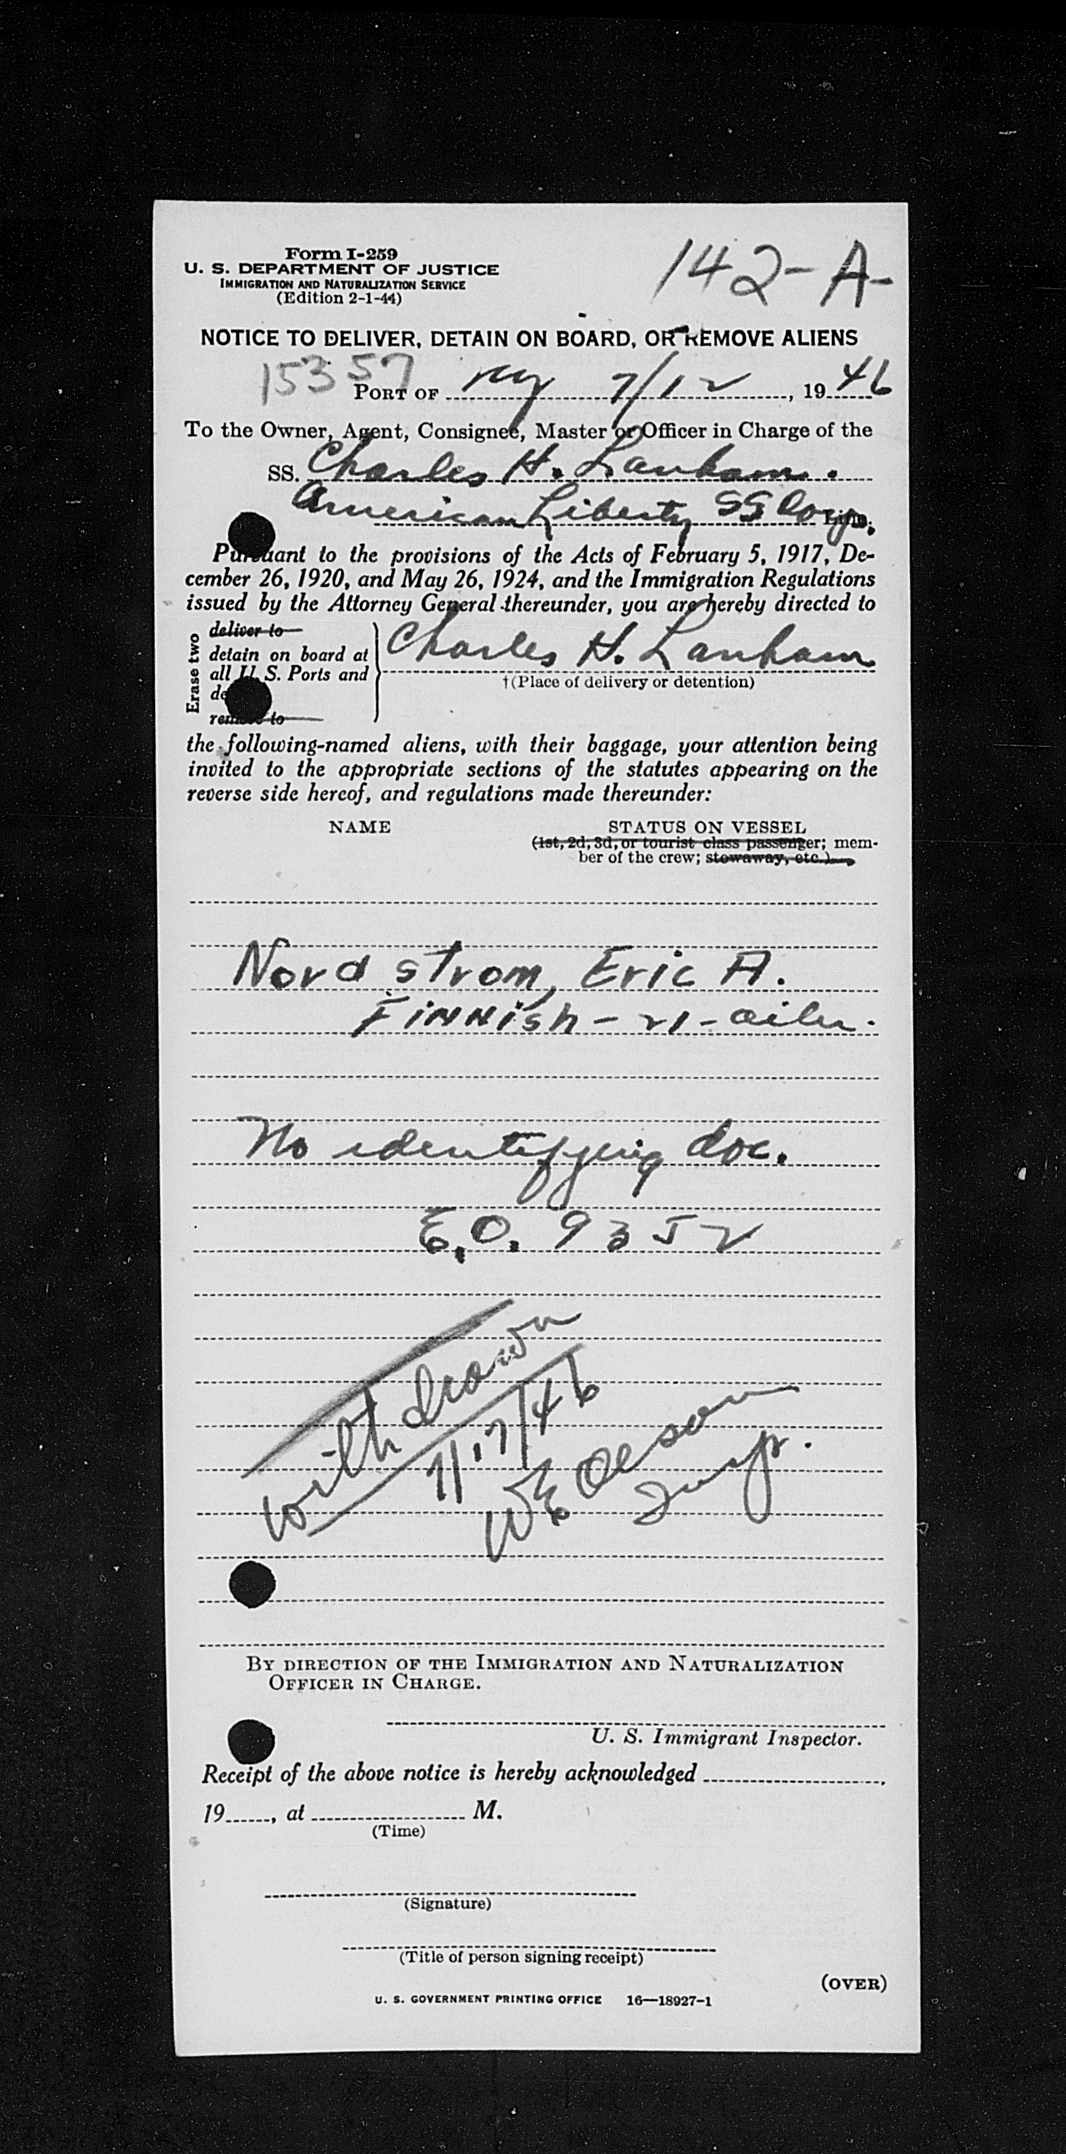 Form I-259
U. S. DEPARTMENT OF JUSTICE
IMMIGRATION AND NATURALIZATION SERVICE
(Edition 2-1-44)
142-A-
NOTICE TO DELIVER, DETAIN ON BOARD, OR REMOVE ALIENS
15357
PORT OF NY 7/12, 1946
To the Owner, Agent, Consignee, Master or Officer in Charge of the
SS. Charles H. Lanham.
American Liberty SS Corp. Line.
Pursuant to the provisions of the Acts of February 5, 1917, De-
cember 26, 1920, and May 26, 1924, and the Immigration Regulations
issued by the Attorney General thereunder, you are hereby directed to
Erase two
deliver to
detain on board at
all U. S. Ports and
remove to
Charles H. Lanham
†(Place of delivery or detention)
the following-named aliens, with their baggage, your attention being
invited to the appropriate sections of the statutes appearing on the
reverse side hereof, and regulations made thereunder:
NAME STATUS ON VESSEL
(1st, 2d, 3d, or tourist class passenger; mem-
ber of the crew; stowaway, etc.)
Nordstrom, Eric A.
Finnish - 21 - oiler.
No identifying doc.
E.O. 9352
Withdrawn
7/17/46
WE Olesom
Insp.
BY DIRECTION OF THE IMMIGRATION AND NATURALIZATION
OFFICER IN CHARGE.
U. S. Immigrant Inspector.
Receipt of the above notice is hereby acknowledged
19, at M.
(Time)
(Signature)
(Title of person signing receipt)
(OVER)
U. S. GOVERNMENT PRINTING OFFICE 16—18927-1